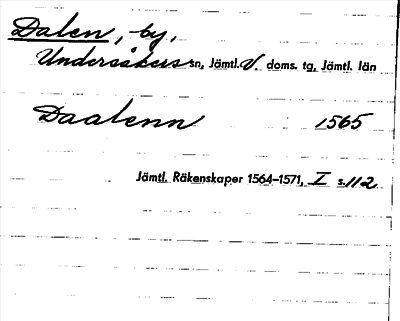 Dalen, by,
Undersåkers sn, Jämtl. V. doms. tg, Jämtl. län
Daalenn 1565
Jämtl. Räkenskaper 1564–1571, I s. 112